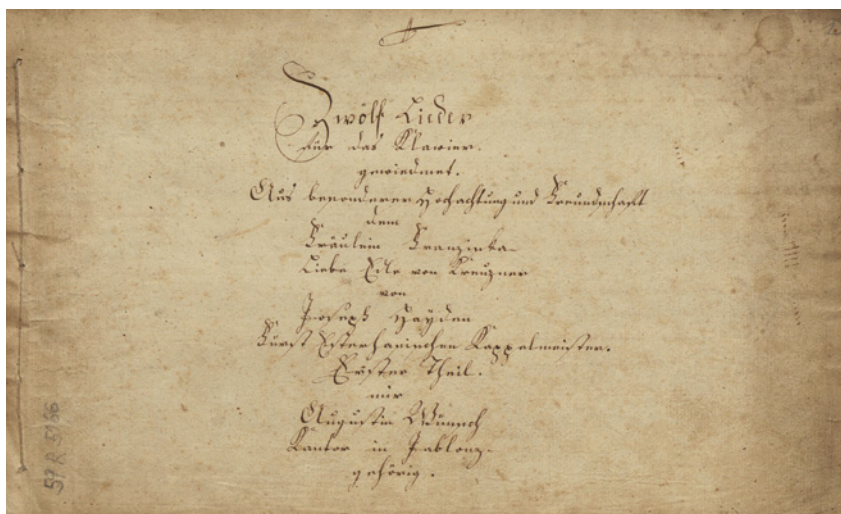 Zwölf Lieder
für das Klavier.
gewiedmet.
Aus besonderer Hochachtung und Freundschaft
dem
Fräulein Franziska
Liebe Edle von Kreuzner
von
Joseph Hayden
Fürst Esterhazischen Kappelmeister.
Erster Theil.
mir
Augustin Wünsch
Kantor in Gablonz.
gehörig.
57 R 5166